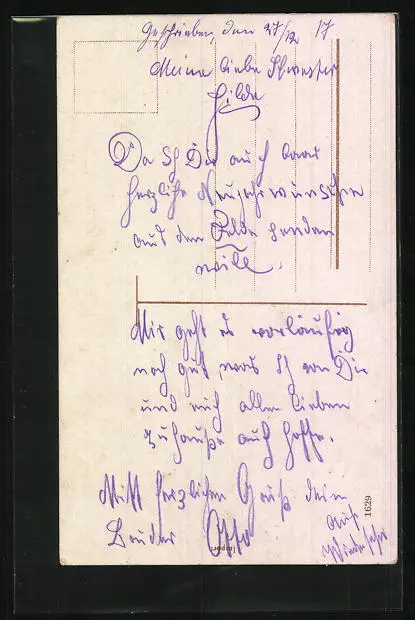 Geschrieben, den 27/12 17
Meine liebe Schwester
Hilde
Da Ich Dir auch baar
herzliche Neujahrwünsche
aus dem Felde senden
will.
Mir geht es vorläufig
noch gut, was Ich von Dir
und euch allen Lieben
zuhauße auch hoffe.
Mitt herzlichen Gruß dein
Bruder Otto
Auf
Wiedersehn
1629
Import